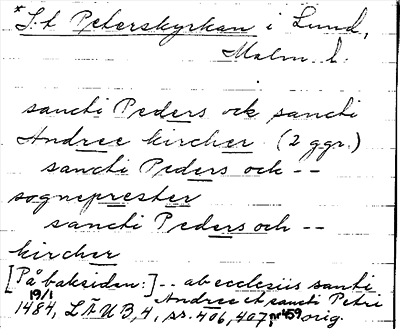 * S:t Peterskyrkan i Lund,
Malm. l.
sancti Peders ock sancti
Andree kircher (2 ggr.)
sancti Peders ock --
sogneprester
sancti Peders och --
kircher
[På baksidan:] -- ab ecclesiis santi
Andree et sancti Petri
19/1 1484, LÄUB, 4, sr. 406, 407, nr 459 orig.